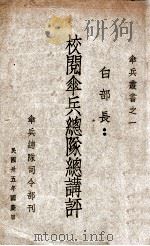 傘兵叢書之一
白部長：
校閱傘兵總隊總講評
傘兵總隊司令部刊
民國卅五年國慶日